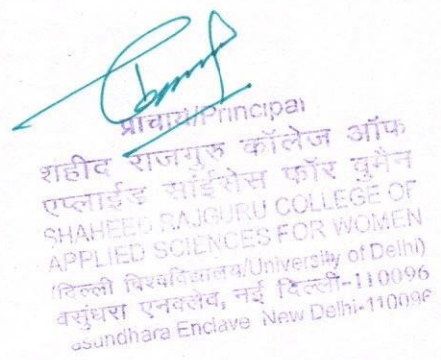 प्राचार्य/Principal
शहीद राजगुरू कॉलेज ऑफ
एप्लाईड साईंसेस फॉर वुमैन
SHAHEED RAJGURU COLLEGE OF
APPLIED SCIENCES FOR WOMEN
(दिल्ली विश्वविद्यालय/University of Delhi)
वसुंधरा एनक्लेव, नई दिल्ली-110096
asundhara Enclave New Delhi-110096